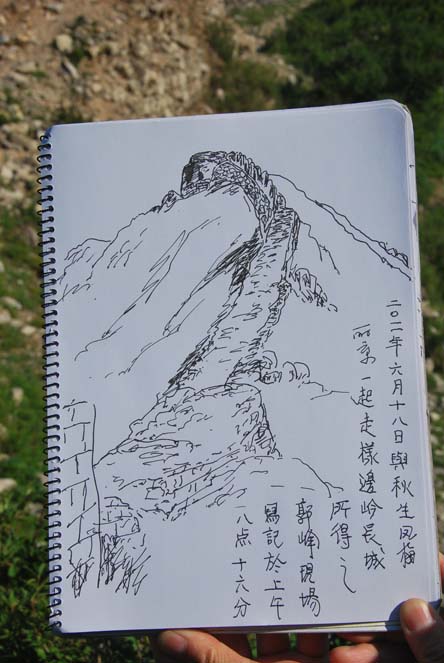 二〇二一年六月十八日與秋生凤梅
丽京一起走樣邊岭長城
所得之
郭峰現場
寫記於上午
八点十六分